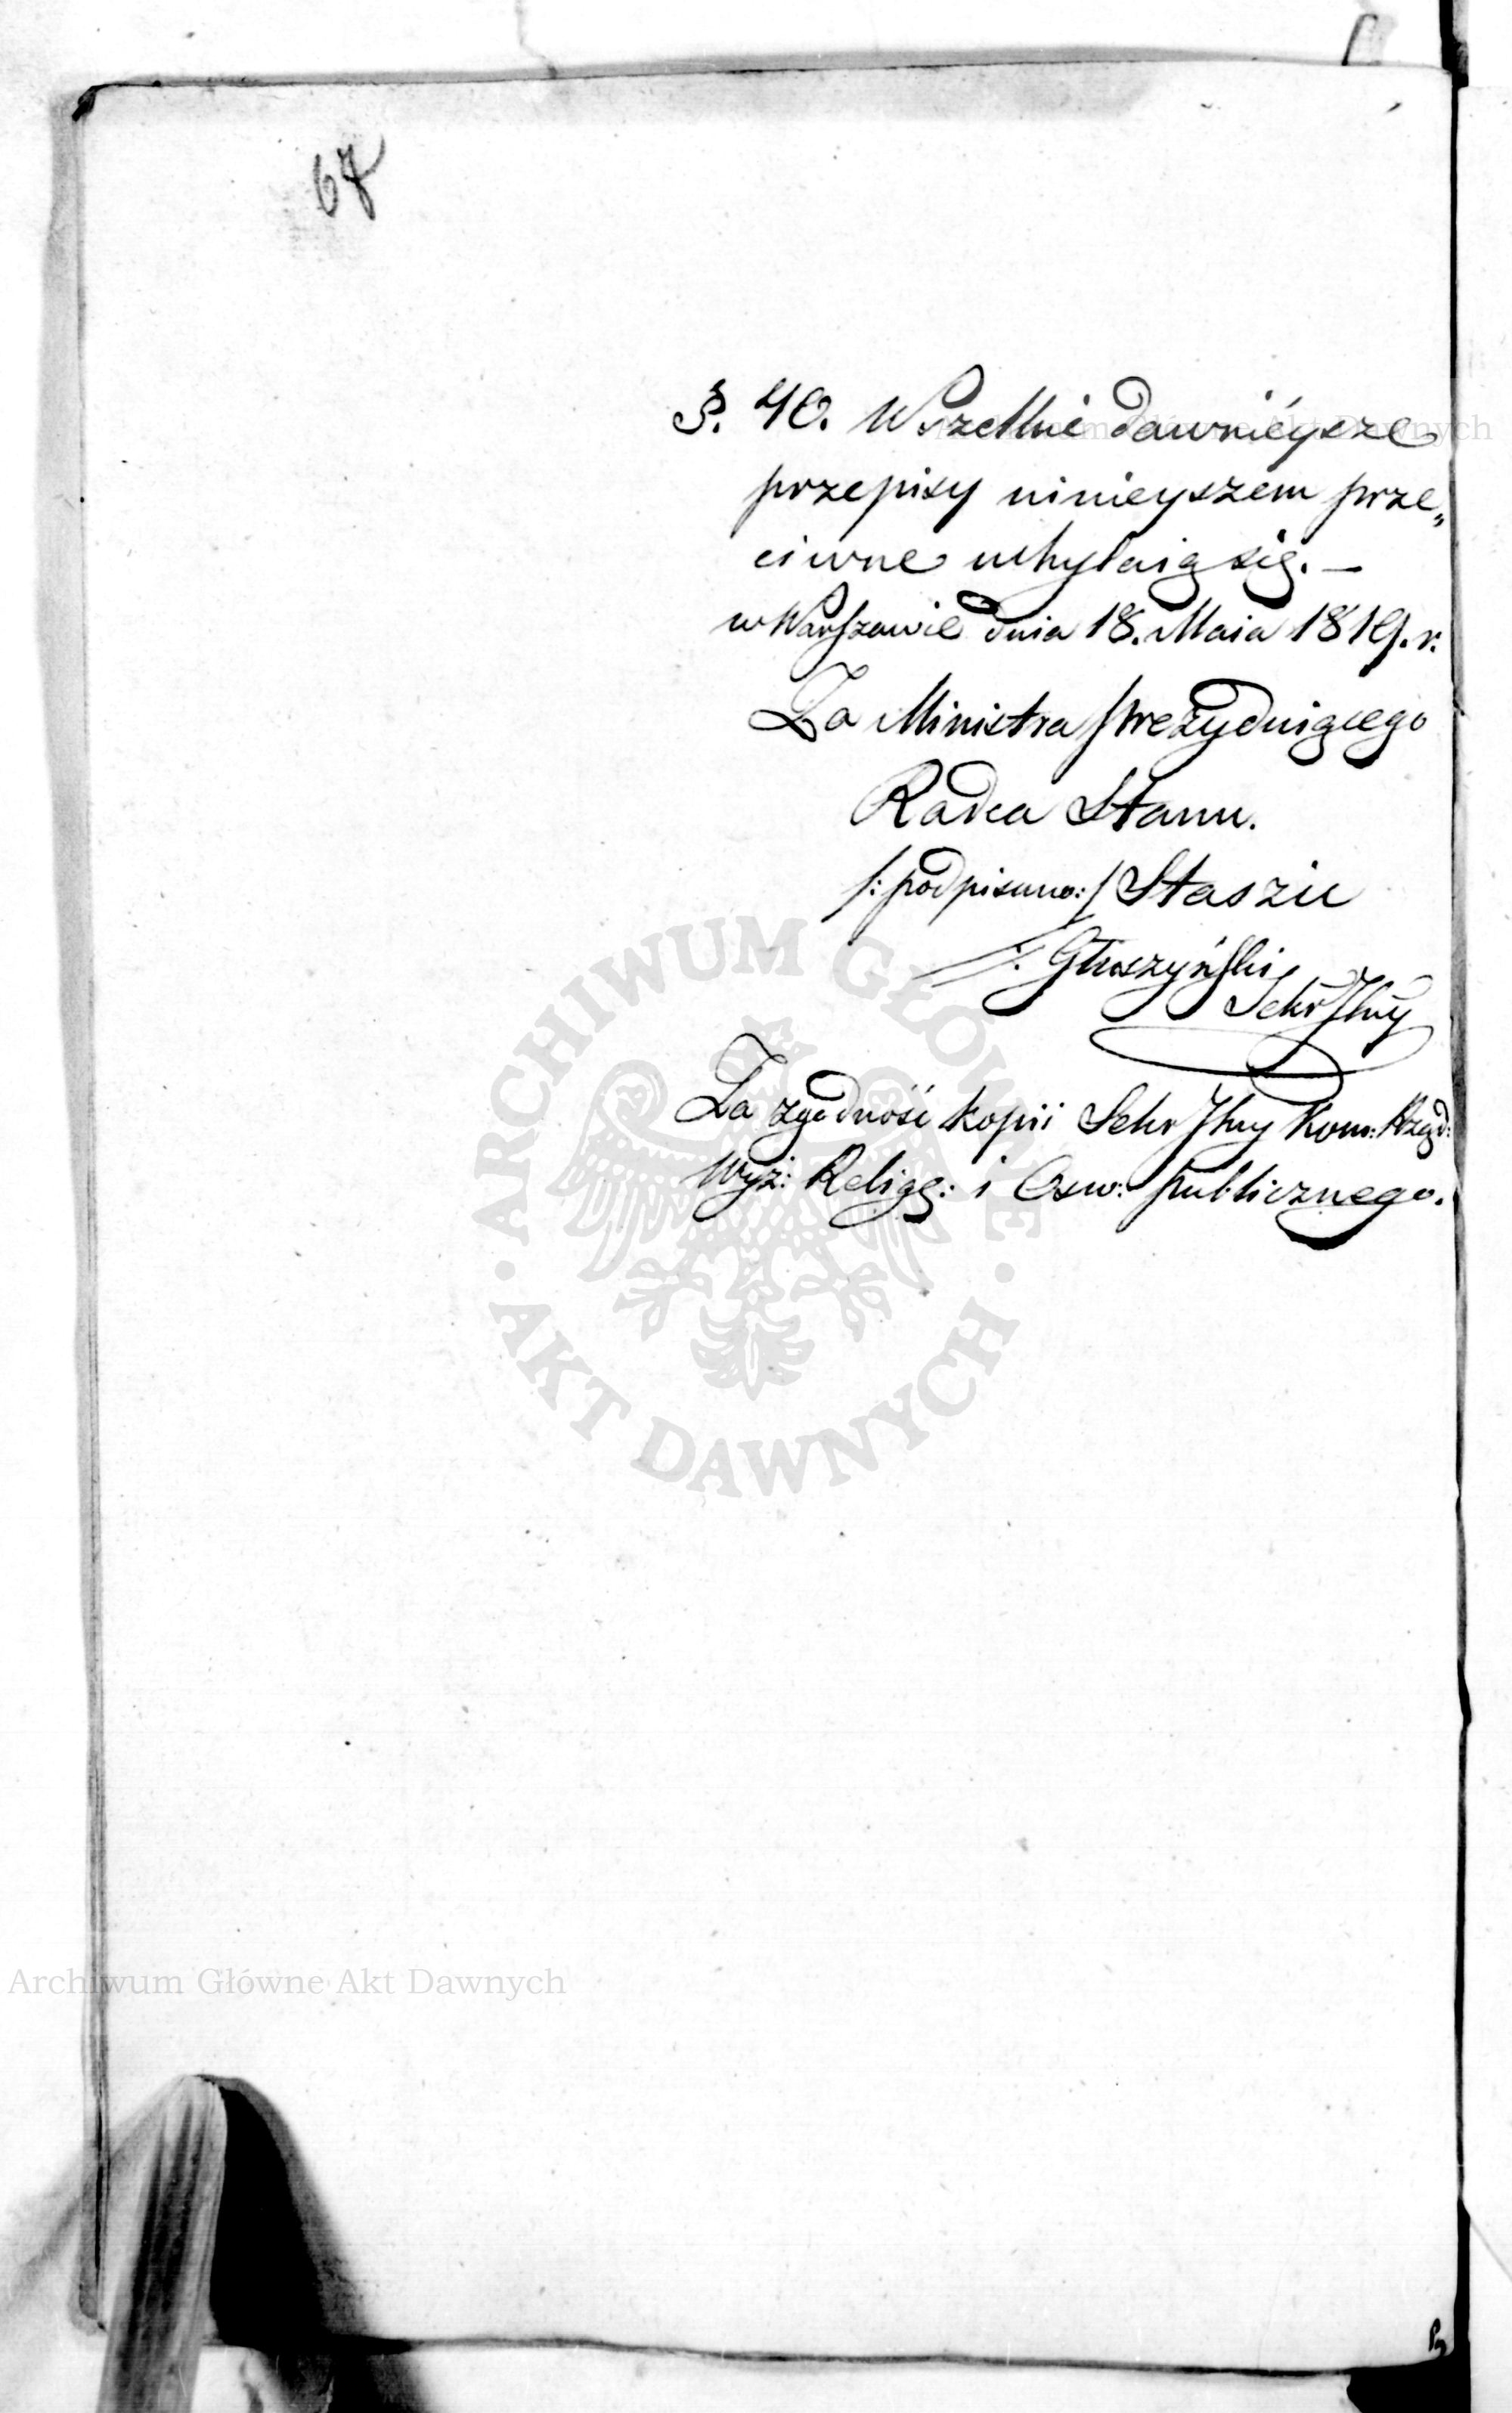 67
§. 40. Wszelkie dawniéysze
przepisy ninieyszem prze„
ciwne uchylaią się. —
w Warszawie dnia 18. Maia 1819. r.
Za Ministra prezyduiącego
Radca Stanu.
/: podpisano: / Staszic
Głuszyński
Sekr Jlny
Za zgodność kopii Sekr Jlny Kom: Rząd:
Wyz: Relig: i Osw: publicznego.
ARCHIWUM GŁÓWNE
AKT DAWNYCH
Archiwum Główne Akt Dawnych